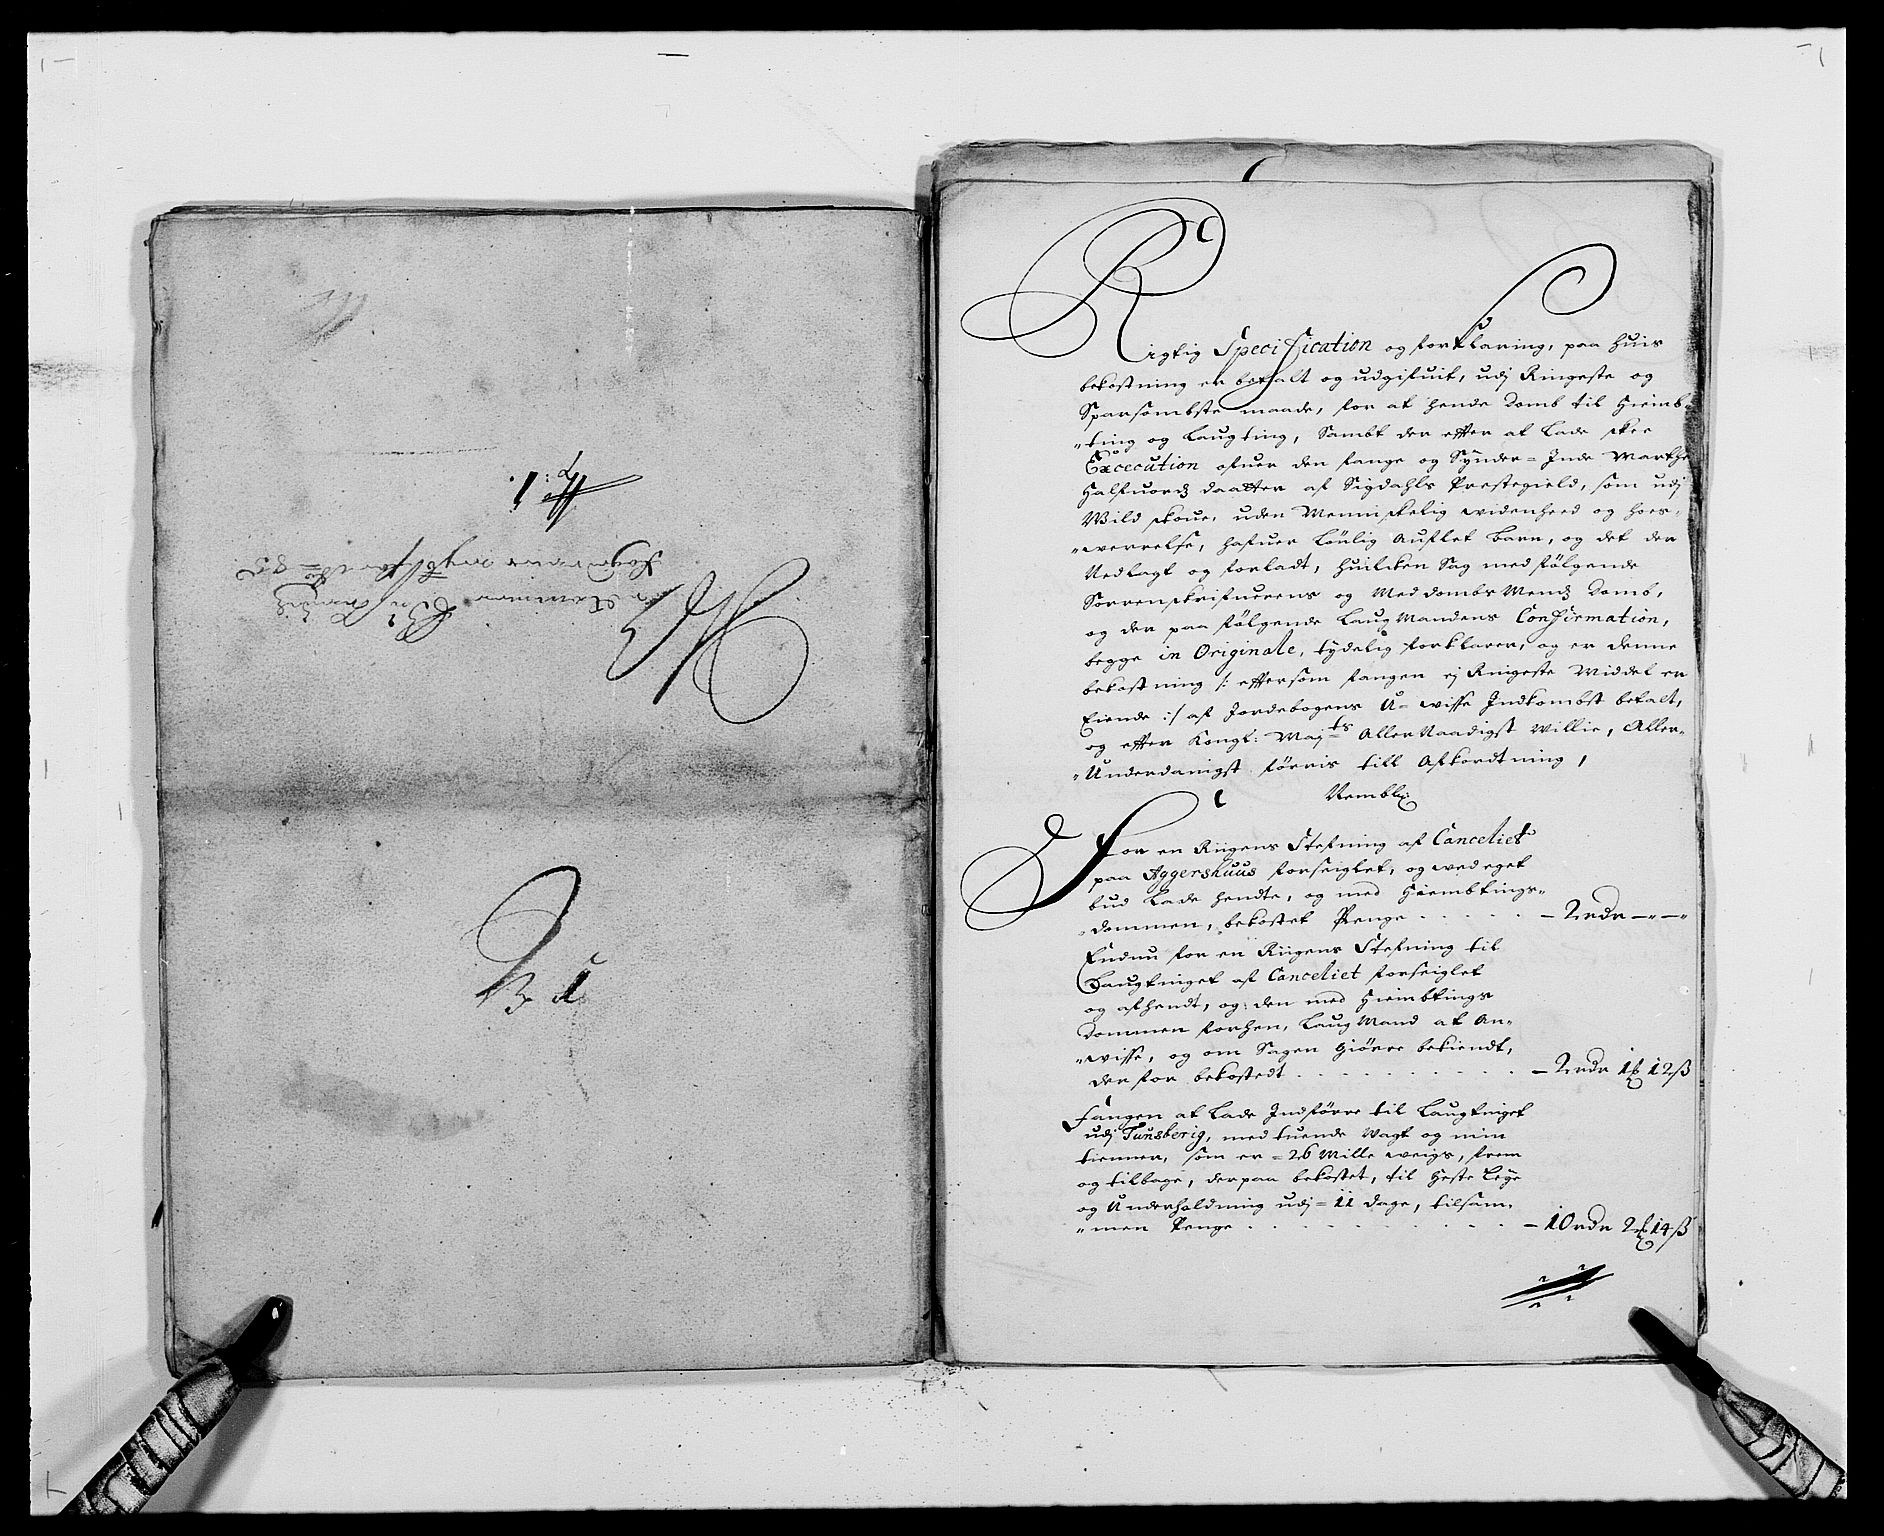 N: 1.
Rigtig Specification og forklaring, paa huis
bekostning er betalt og udgifuit, udj Ringeste og
Sparsombste maade, for at hende domb til Hiemb-
„ting og Laugting, Sambt der effter at Lade skee
Execution ofuer den fange og Synder-Inde Marthe
Halfuordz daatter af Sigdahls Prestegield, som udj
Wild skoue, uden Menniskelig widenheed og hoes-
„werrelse, hafuer Löulig Auflet barn, og det der
Nedlagt og forladt, huilcken Sag med fölgende
Sorrenskrifuerens og Meddombs Mendz domb,
og der paa fölgende Laug Mandens Confirmation,
begge in Originale, tydelig forklarer, og er denne
bekostning /: effersom fangen ej Ringeste Middel er
Eiende :/ af Jordebogens U-wisse Indkombst betalt,
og effter Kongl: Maj:ts Aller Naadigst Willie, Aller-
„Underdanigst förris till Afkordtning,
Nembl:
For en Rigens Stefning af Canceliet
paa Aggershuus forseiglet, og wed eget
bud Lade hendte, og med Hiembtings-
„dommen, bekostet Penge - - - - - 2 rdr — „ — „
Endnu for en Rigens Stefning til
Laugtinget af Canceliet forseiglet
og afhendt, og den med Hiembtings
dommen forhen, Laug Mand at An-
„wisse, og om Sagen Giörre bekiendt,
der for bekostedt - - - - - - - - - 2 rdr 1 ₰ 12 ß
Fangen at Lade Indförre til Laugtinget
udj Tunsberig, med tuende Wagt og min
tienner, som er = 26 Mille weigs, frem
og tilbage, derpaa bekostet, til Heste Leye
og Underholdning udj = 11 dage, tilsam-
„men Penge - - - - - - - - - - 10 rdr 2 ₰ 14 ß